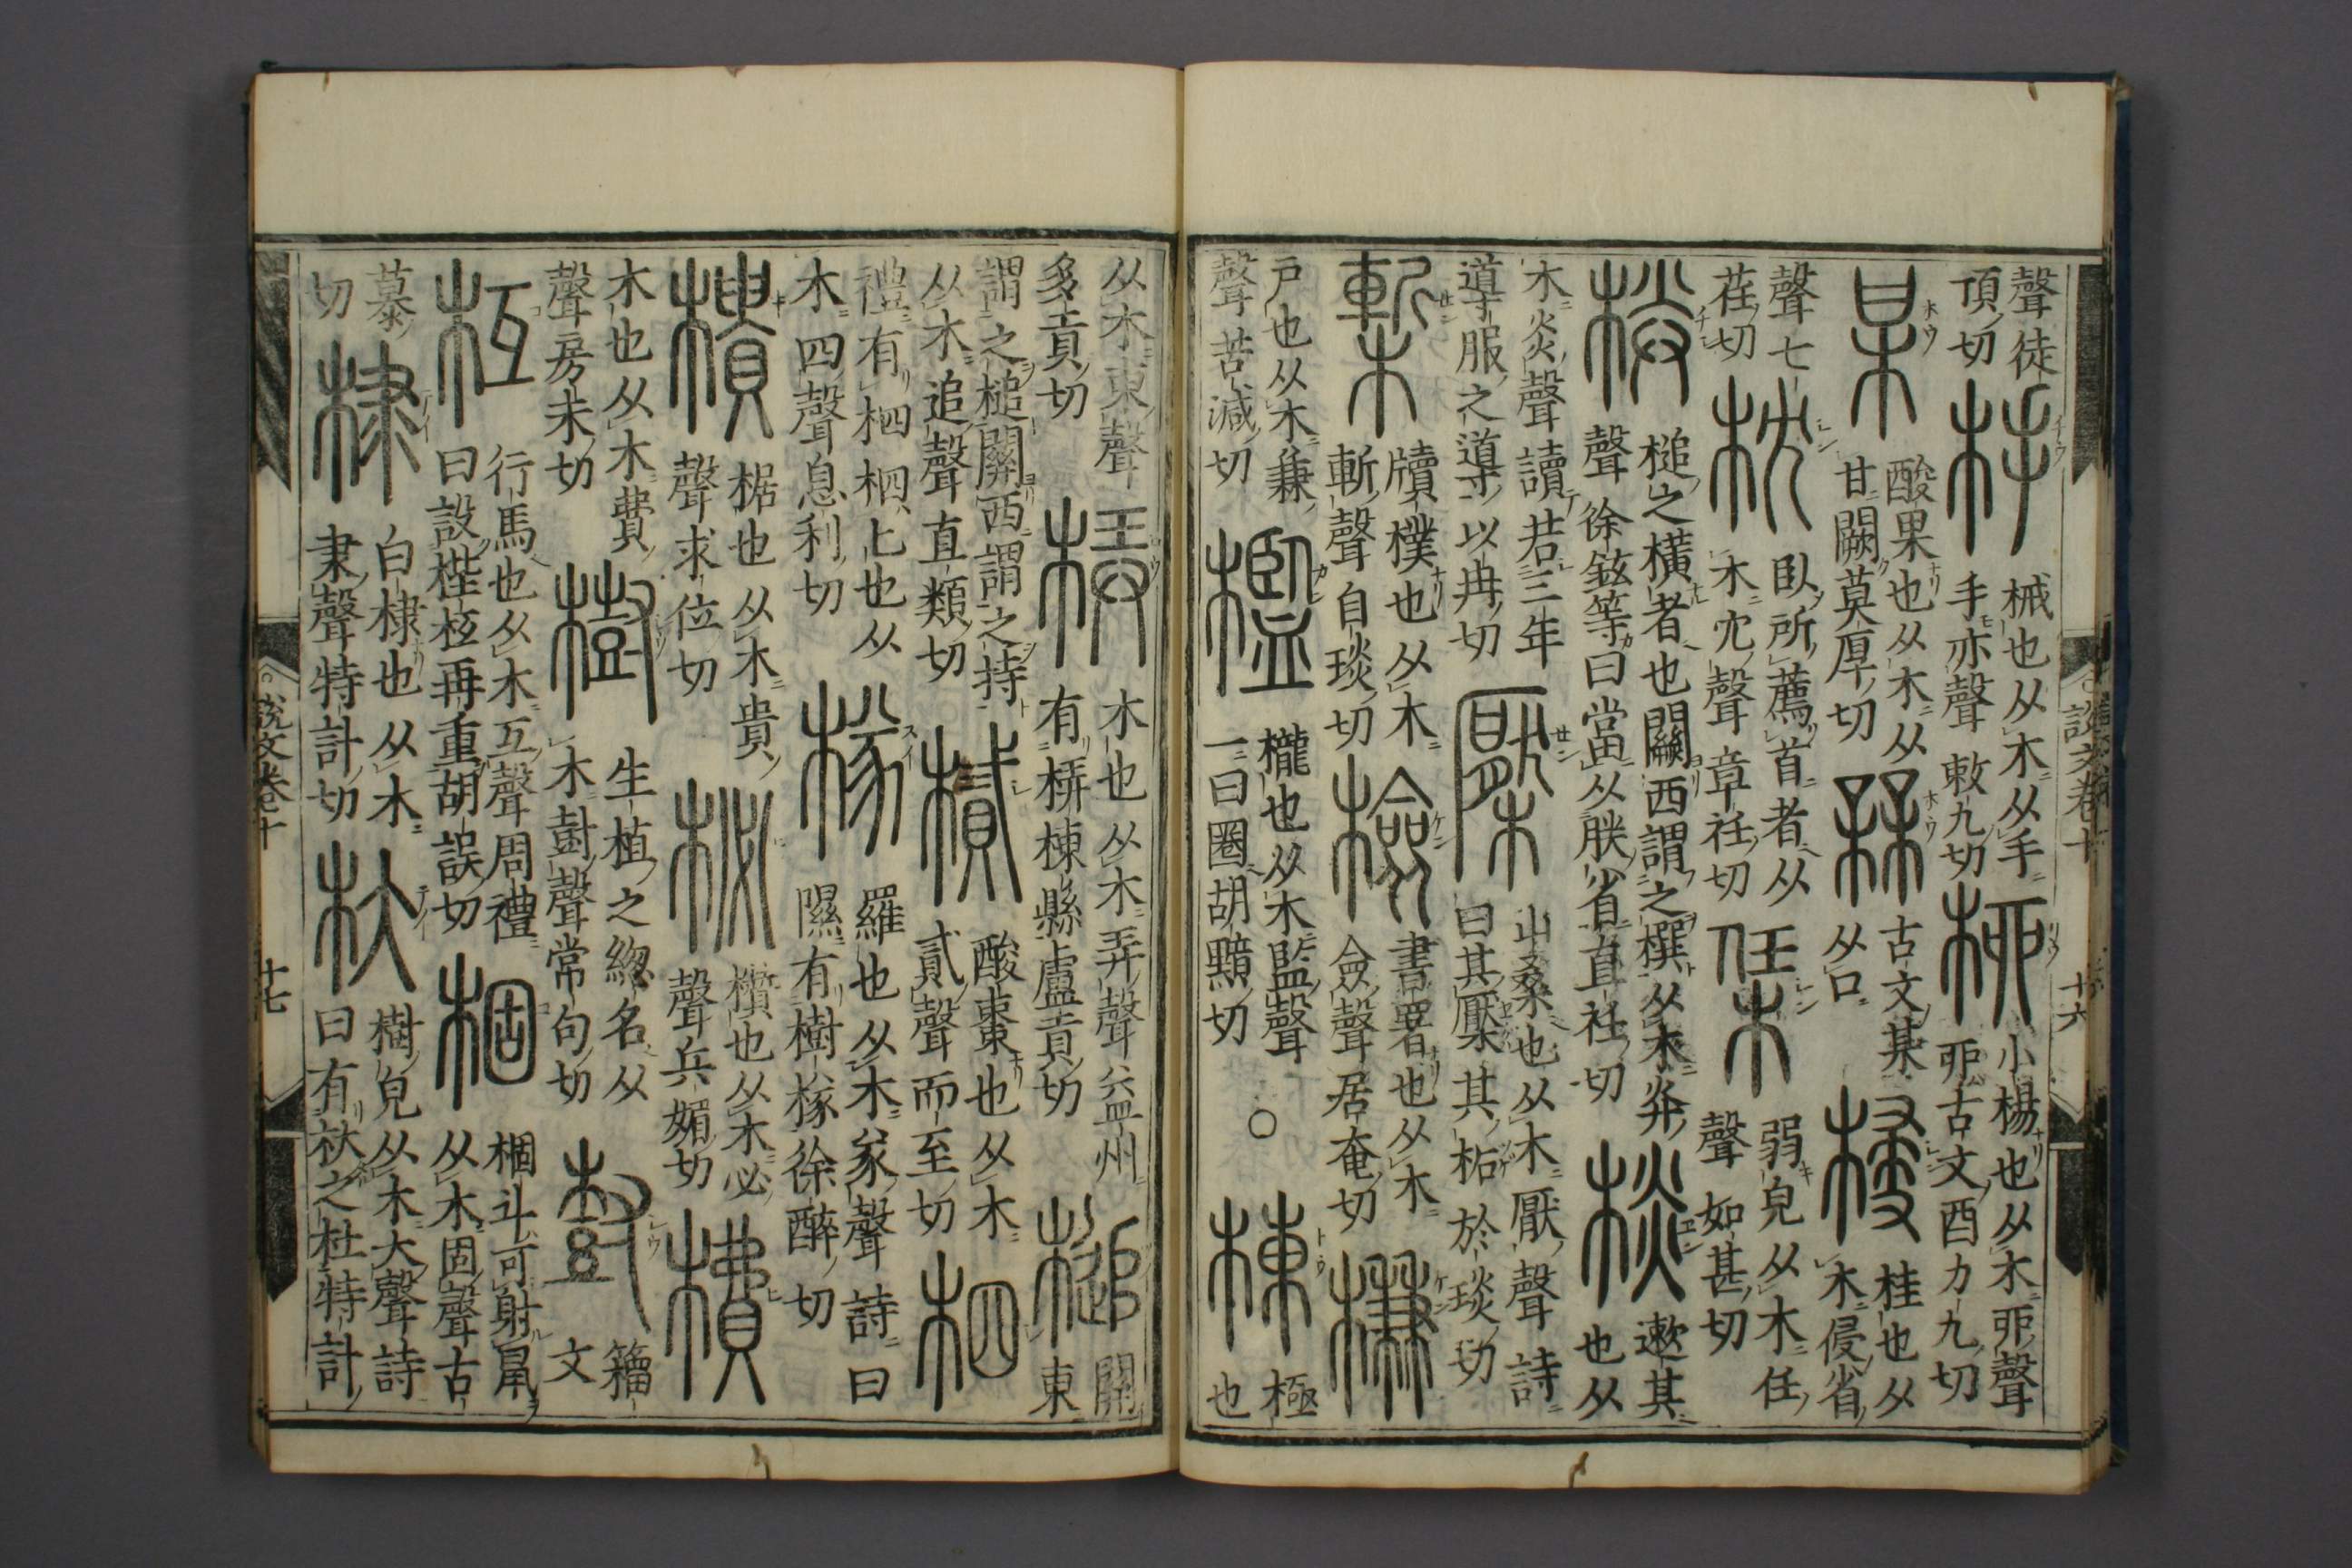 說文卷十 十六
聲徒
頂切
杽
械也从木从手
手亦聲敕九切
桺
小楊也从木丣聲
丣古文酉力九切
某
酸果也从木从
甘闕莫厚切
槑
古文某
从口
梫
桂也从
木侵省
聲七
荏切
枕
臥所薦首者从
木冘聲章衽切
弱皃从木任
聲如甚切
栚
槌之橫者也關西謂之㯢从木灷
聲徐鉉等曰當从朕省直衽切
棪
遬其
也从
木炎聲讀若三年
導服之導以冉切
檿
山桑也从木厭聲詩
曰其檿其柘於琰切
槧
牘樸也从木
斬聲自琰切
檢
書署也从木
僉聲居奄切
槏
戶也从木兼
聲苦減切
檻
櫳也从木監聲
一曰圈胡黤切
○
棟
極
也
从木東聲
多貢切
梇
木也从木弄聲益州
有梇棟縣盧貢切
槌
關
東
謂之槌關西謂之持
从木追聲直類切
樲
酸棗也从木
貳聲而至切
柶
禮有柶柶匕也从
木四聲息利切
檖
羅也从木㒸聲詩曰
隰有樹檖徐醉切
樻
椐也从木貴
聲求位切
柲
欑也从木必
聲兵媚切
木也从木費
聲房未切
樹
生植之緫名从
木尌聲常句切
籒
文
枑
行馬也从木互聲周禮
曰設梐枑再重胡誤切
棝
棝斗可射鼠
从木固聲古
慕
切
棣
白棣也从木
隶聲特計切
杕
樹皃从木大聲詩
曰有杕之杜特計
說文卷十 十七